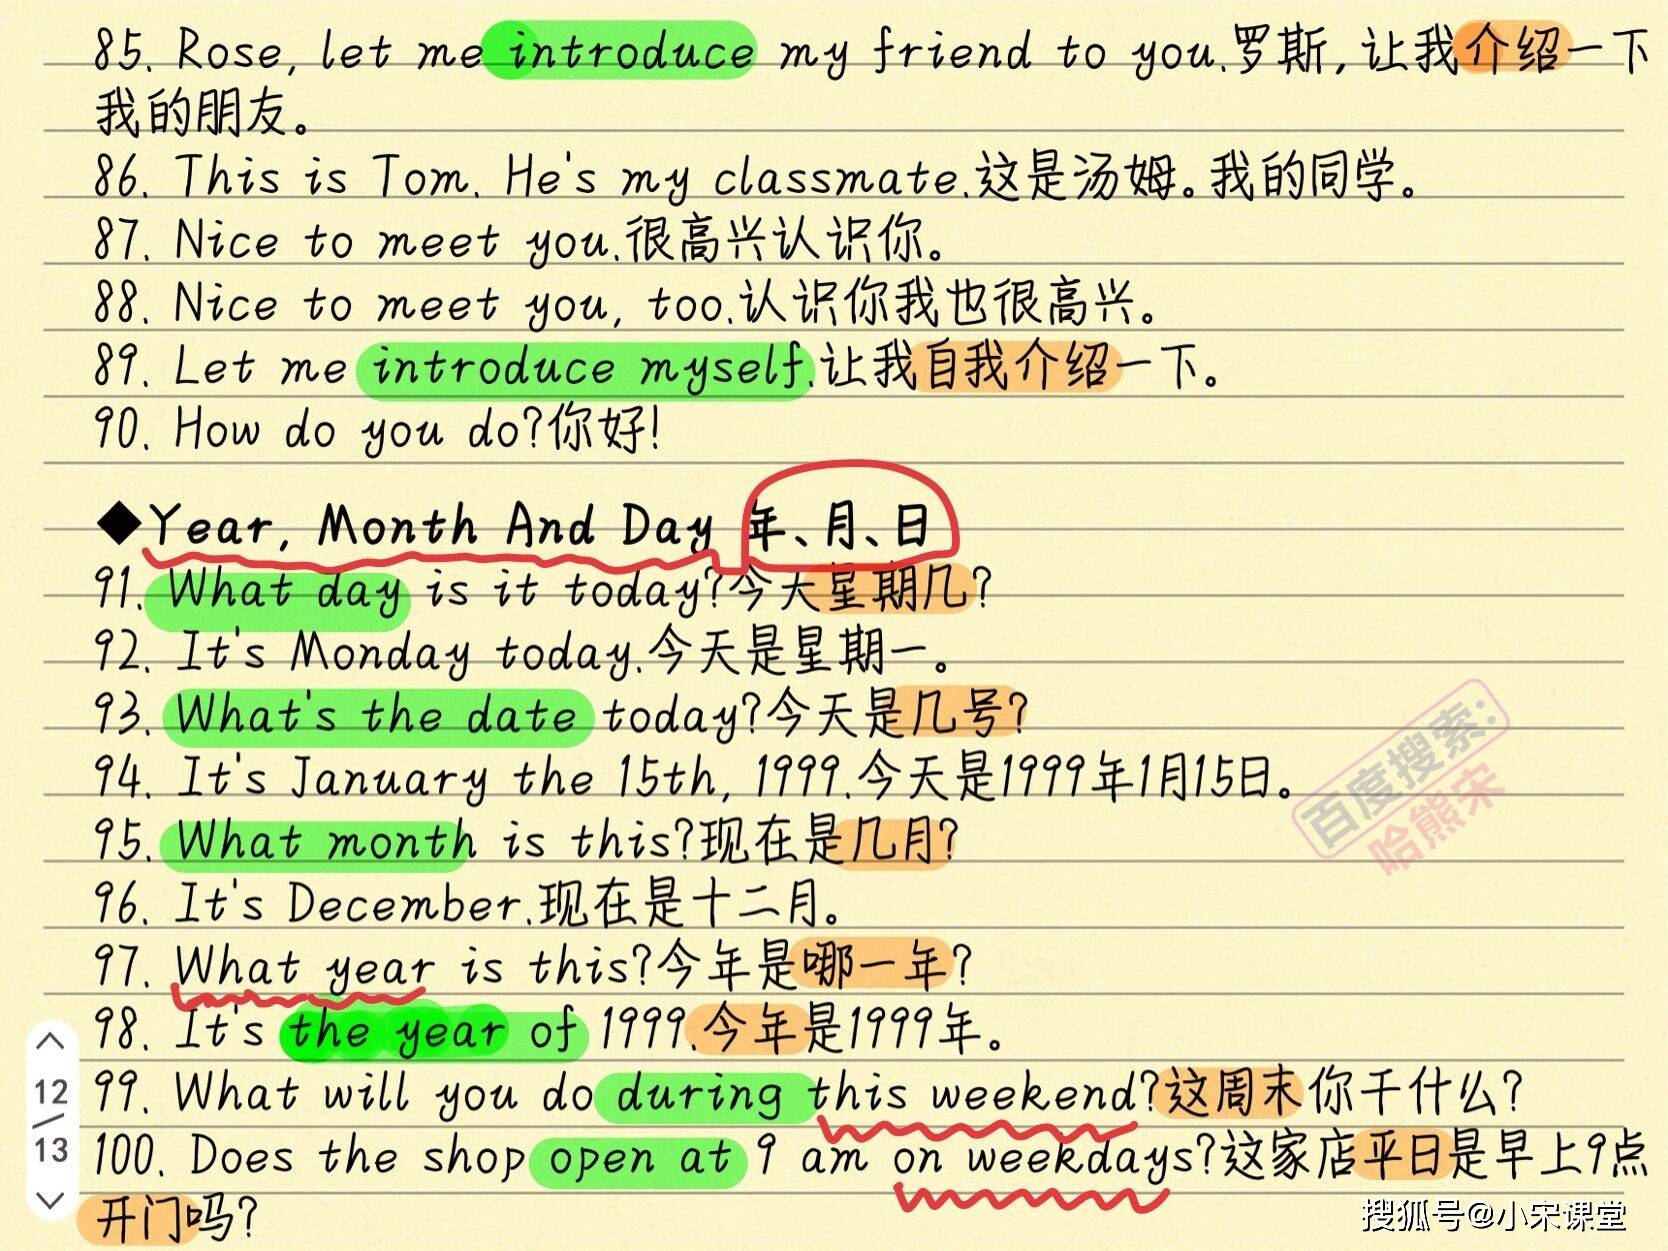 85. Rose, let me introduce my friend to you.罗斯,让我介绍一下
我的朋友。
86. This is Tom. He's my classmate.这是汤姆。我的同学。
87. Nice to meet you.很高兴认识你。
88. Nice to meet you, too.认识你我也很高兴。
89. Let me introduce myself.让我自我介绍一下。
90. How do you do?你好!
◆Year, Month And Day 年、月、日
91. What day is it today?今天星期几?
92. It's Monday today.今天是星期一。
93. What's the date today?今天是几号?
94. It's January the 15th, 1999.今天是1999年1月15日。
95. What month is this?现在是几月?
96. It's December.现在是十二月。
97. What year is this?今年是哪一年?
98. It's the year of 1999.今年是1999年。
99. What will you do during this weekend?这周末你干什么?
100. Does the shop open at 9 am on weekdays?这家店平日是早上9点
开门吗?
百度搜索:
哈熊宋
12
13
搜狐号@小宋课堂